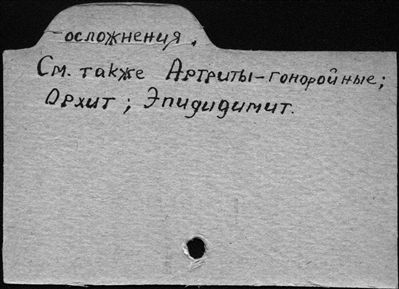 -осложнения.
См. также Артриты-гоноройные;
Орхит; Эпидидимит.